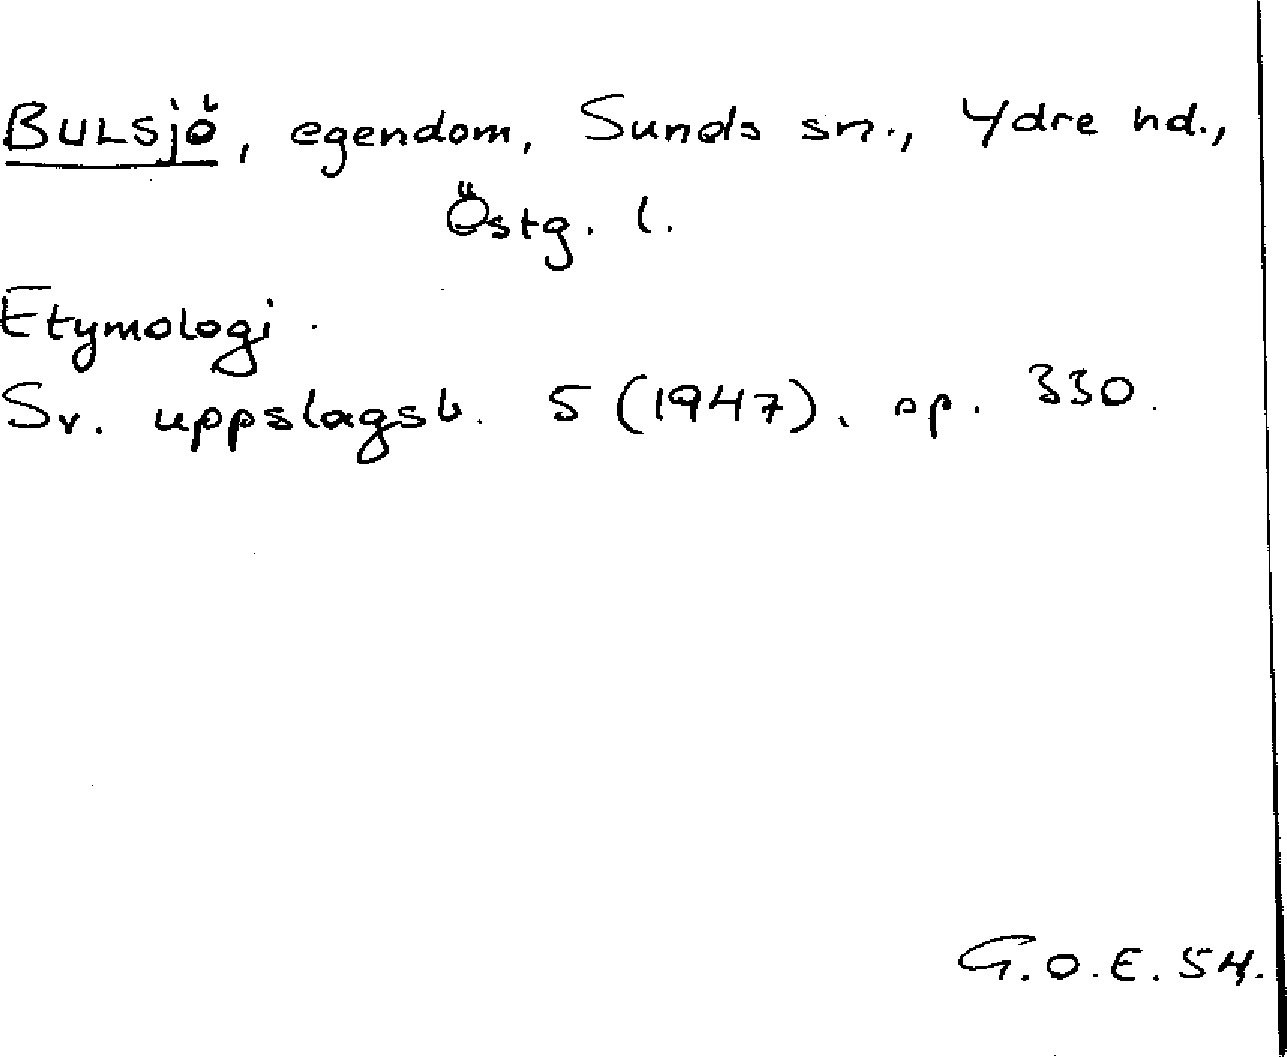 BULSjö, egendom, Sunds sn., Ydre hd.,
Östg. l.
Etymologi.
Sv. uppslagsb. 5 (1947), sp. 330.
G.O.E. 54.